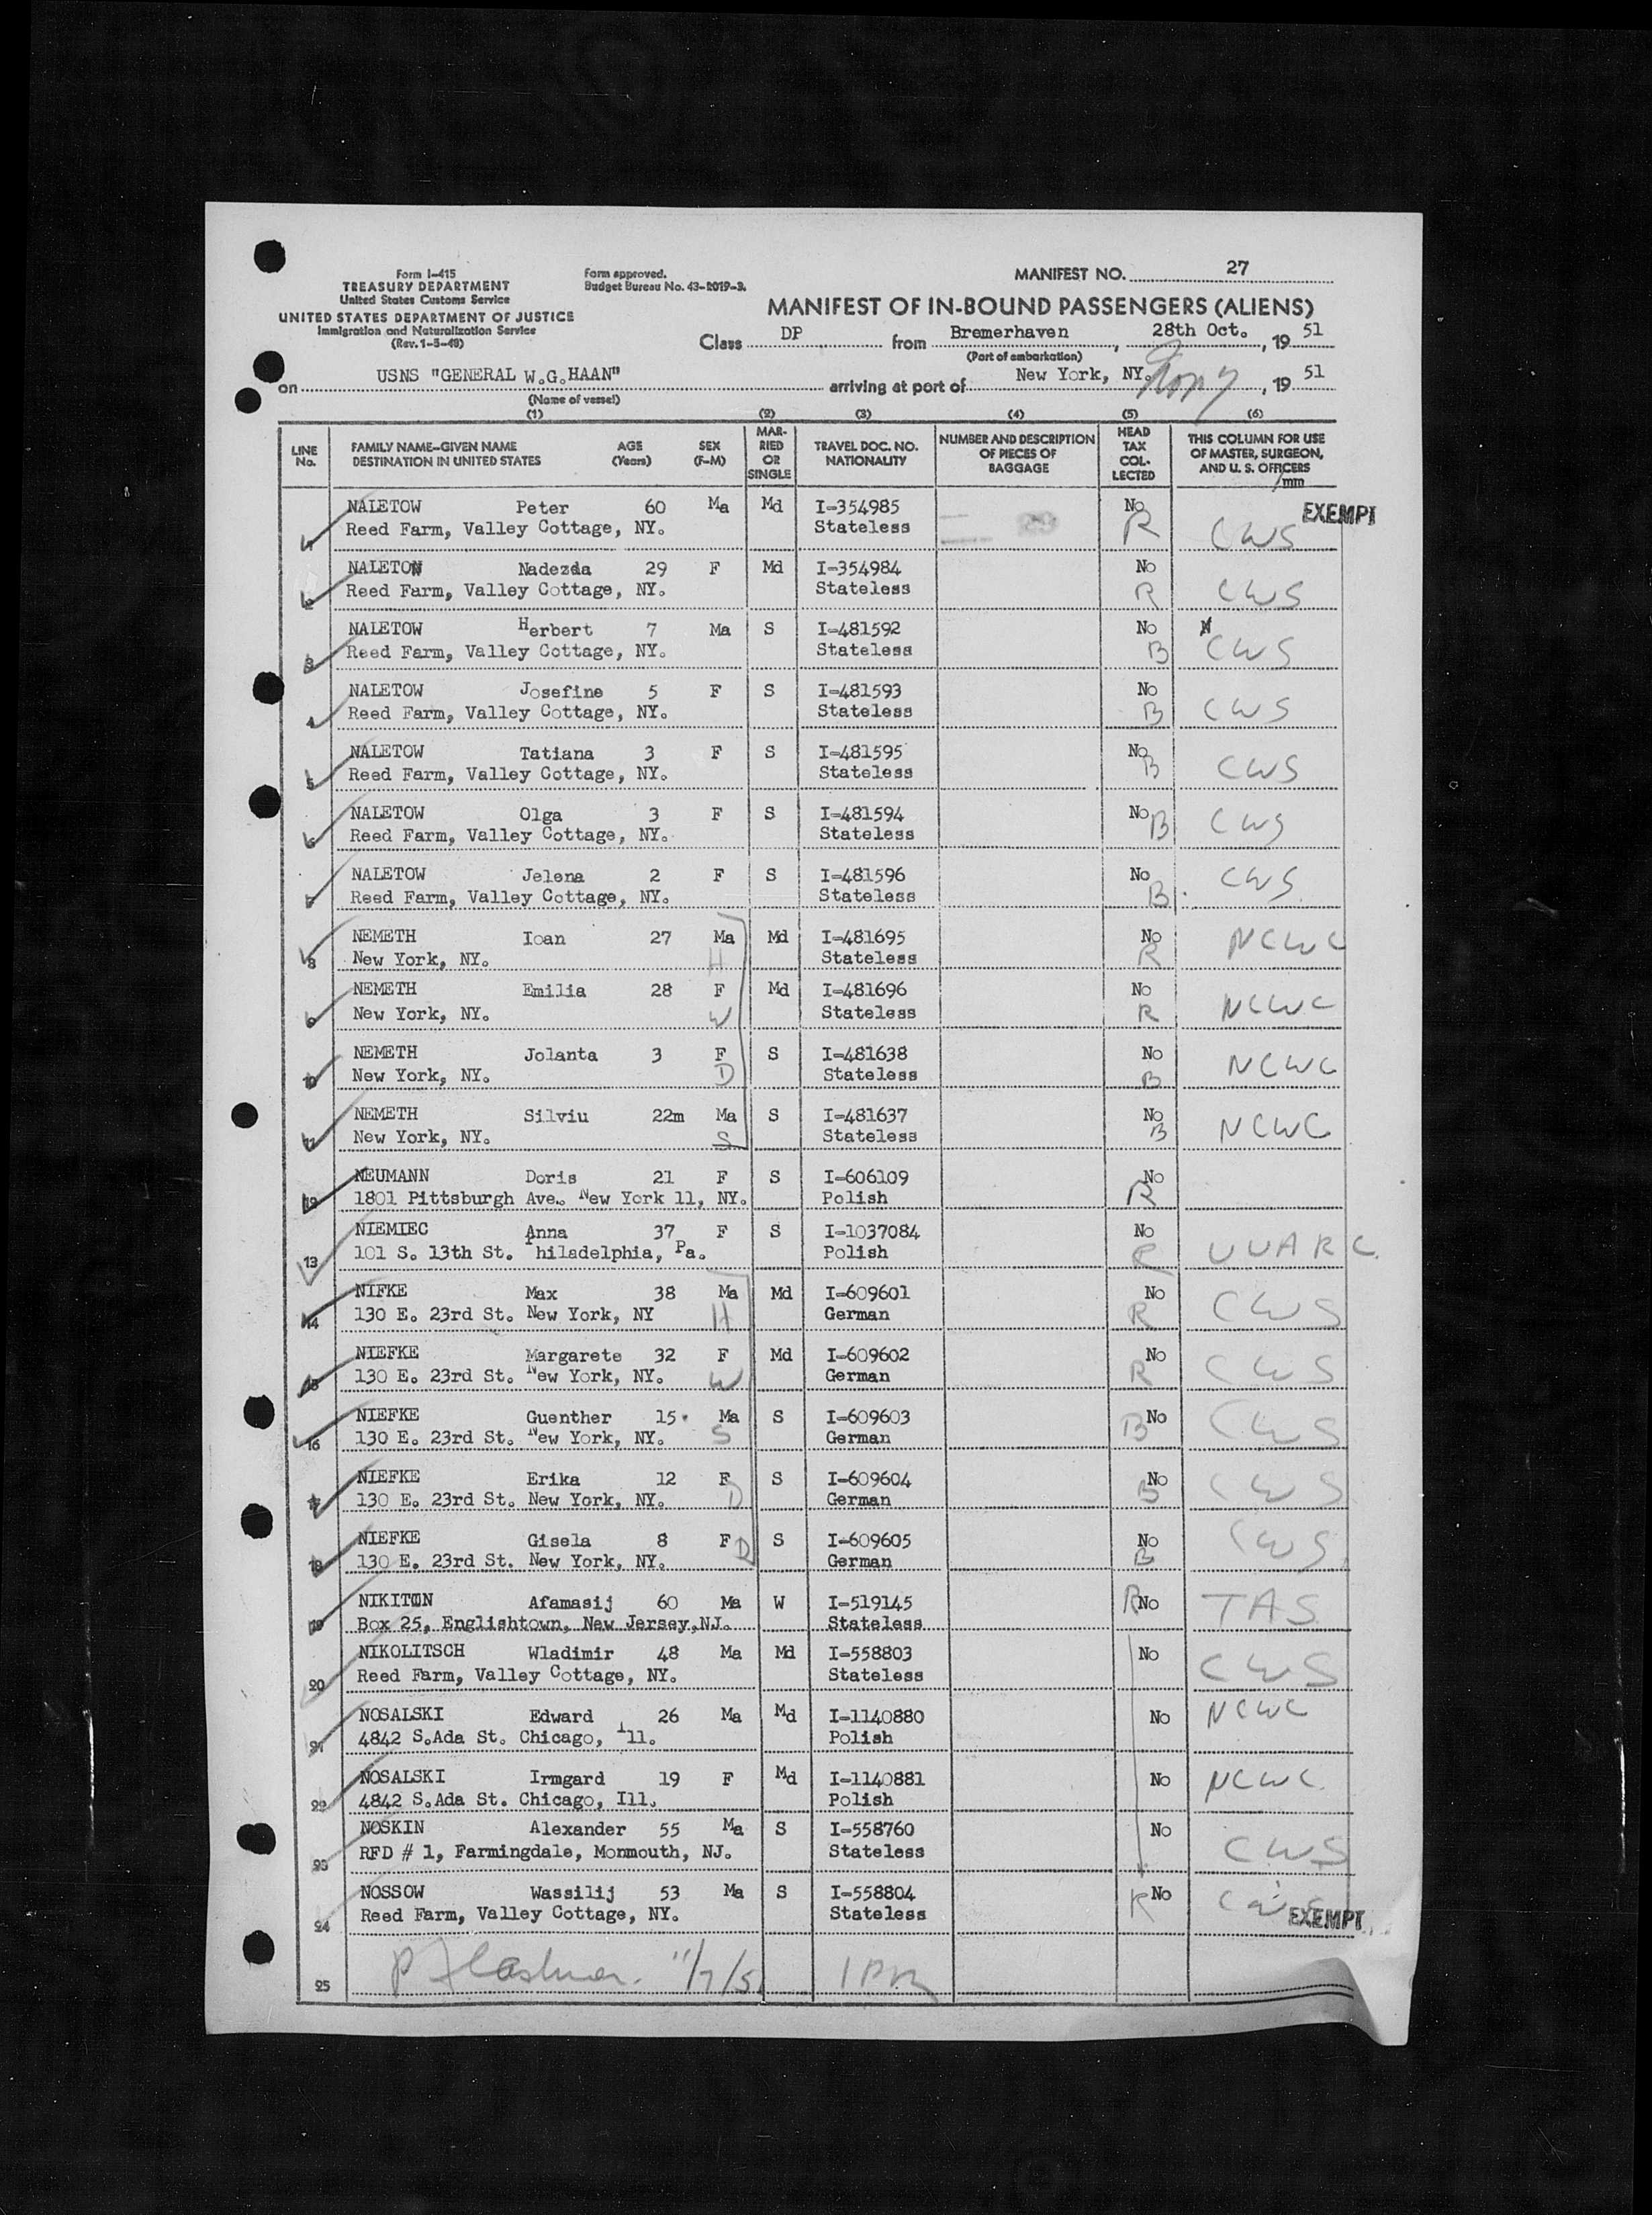 Form I-415
TREASURY DEPARTMENT
United States Customs Service
UNITED STATES DEPARTMENT OF JUSTICE
Immigration and Naturalization Service
(Rev. 1-5-49)
Form approved.
Budget Bureau No. 43-R019-3.
MANIFEST NO. 27
MANIFEST OF IN-BOUND PASSENGERS (ALIENS)
Class DP from Bremerhaven, 28th Oct., 19 51
(Port of embarkation)
on USNS "GENERAL W.G.HAAN" arriving at port of New York, NY. , 19 51
(Name of vessel)
(1) (2) (3) (4) (5) (6)
LINE No. FAMILY NAME—GIVEN NAME DESTINATION IN UNITED STATES AGE (Years) SEX (F-M) MARRIED OR SINGLE TRAVEL DOC. NO. NATIONALITY NUMBER AND DESCRIPTION OF PIECES OF BAGGAGE HEAD TAX COLLECTED THIS COLUMN FOR USE OF MASTER, SURGEON, AND U. S. OFFICERS
/mm
EXEMPT
NALETOW Peter 60 Ma Md I-354985 No
1 Reed Farm, Valley Cottage, NY. Stateless R CWS
NALETOW Nadezda 29 F Md I-354984 No
2 Reed Farm, Valley Cottage, NY. Stateless R CWS
NALETOW Herbert 7 Ma S I-481592 No
3 Reed Farm, Valley Cottage, NY. Stateless B CWS
NALETOW Josefine 5 F S I-481593 No
4 Reed Farm, Valley Cottage, NY. Stateless B CWS
NALETOW Tatiana 3 F S I-481595 No
5 Reed Farm, Valley Cottage, NY. Stateless B CWS
NALETOW Olga 3 F S I-481594 No
6 Reed Farm, Valley Cottage, NY. Stateless B CWS
NALETOW Jelena 2 F S I-481596 No
7 Reed Farm, Valley Cottage, NY. Stateless B CWS
NEMETH Ioan 27 Ma Md I-481695 No
8 New York, NY. H Stateless R NCWC
NEMETH Emilia 28 F Md I-481696 No
9 New York, NY. W Stateless R NCWC
NEMETH Jolanta 3 F S I-481638 No
10 New York, NY. D Stateless B NCWC
NEMETH Silviu 22m Ma S I-481637 No
11 New York, NY. S Stateless B NCWC
NEUMANN Doris 21 F S I-606109 No
12 1801 Pittsburgh Ave. New York 11, NY. Polish R
NIEMIEC Anna 37 F S I-1037084 No
13 101 S. 13th St. Philadelphia, Pa. Polish R UUARC.
NIFKE Max 38 Ma Md I-609601 No
14 130 E. 23rd St. New York, NY H German R CWS
NIEFKE Margarete 32 F Md I-609602 No
15 130 E. 23rd St. New York, NY. W German R CWS
NIEFKE Guenther 15. Ma S I-609603 No
16 130 E. 23rd St. New York, NY. S German B CWS
NIEFKE Erika 12 F S I-609604 No
17 130 E. 23rd St. New York, NY. D German B CWS
NIEFKE Gisela 8 F D S I-609605 No
18 130 E. 23rd St. New York, NY. German B CWS
NIKITIN Afamasij 60 Ma W I-519145 R No TAS
19 Box 25, Englishtown, New Jersey,NJ. Stateless
NIKOLITSCH Wladimir 48 Ma Md I-558803 No
20 Reed Farm, Valley Cottage, NY. Stateless CWS
NOSALSKI Edward 26 Ma Md I-1140880 No NCWC
21 4842 S.Ada St. Chicago, Ill. Polish
NOSALSKI Irmgard 19 F Md I-1140881 No NCWC
22 4842 S.Ada St. Chicago, Ill. Polish
NOSKIN Alexander 55 Ma S I-558760 No
23 RFD # 1, Farmingdale, Monmouth, NJ. Stateless CWS
NOSSOW Wassilij 53 Ma S I-558804 R No
24 Reed Farm, Valley Cottage, NY. Stateless
EXEMPT
25 11/7/51